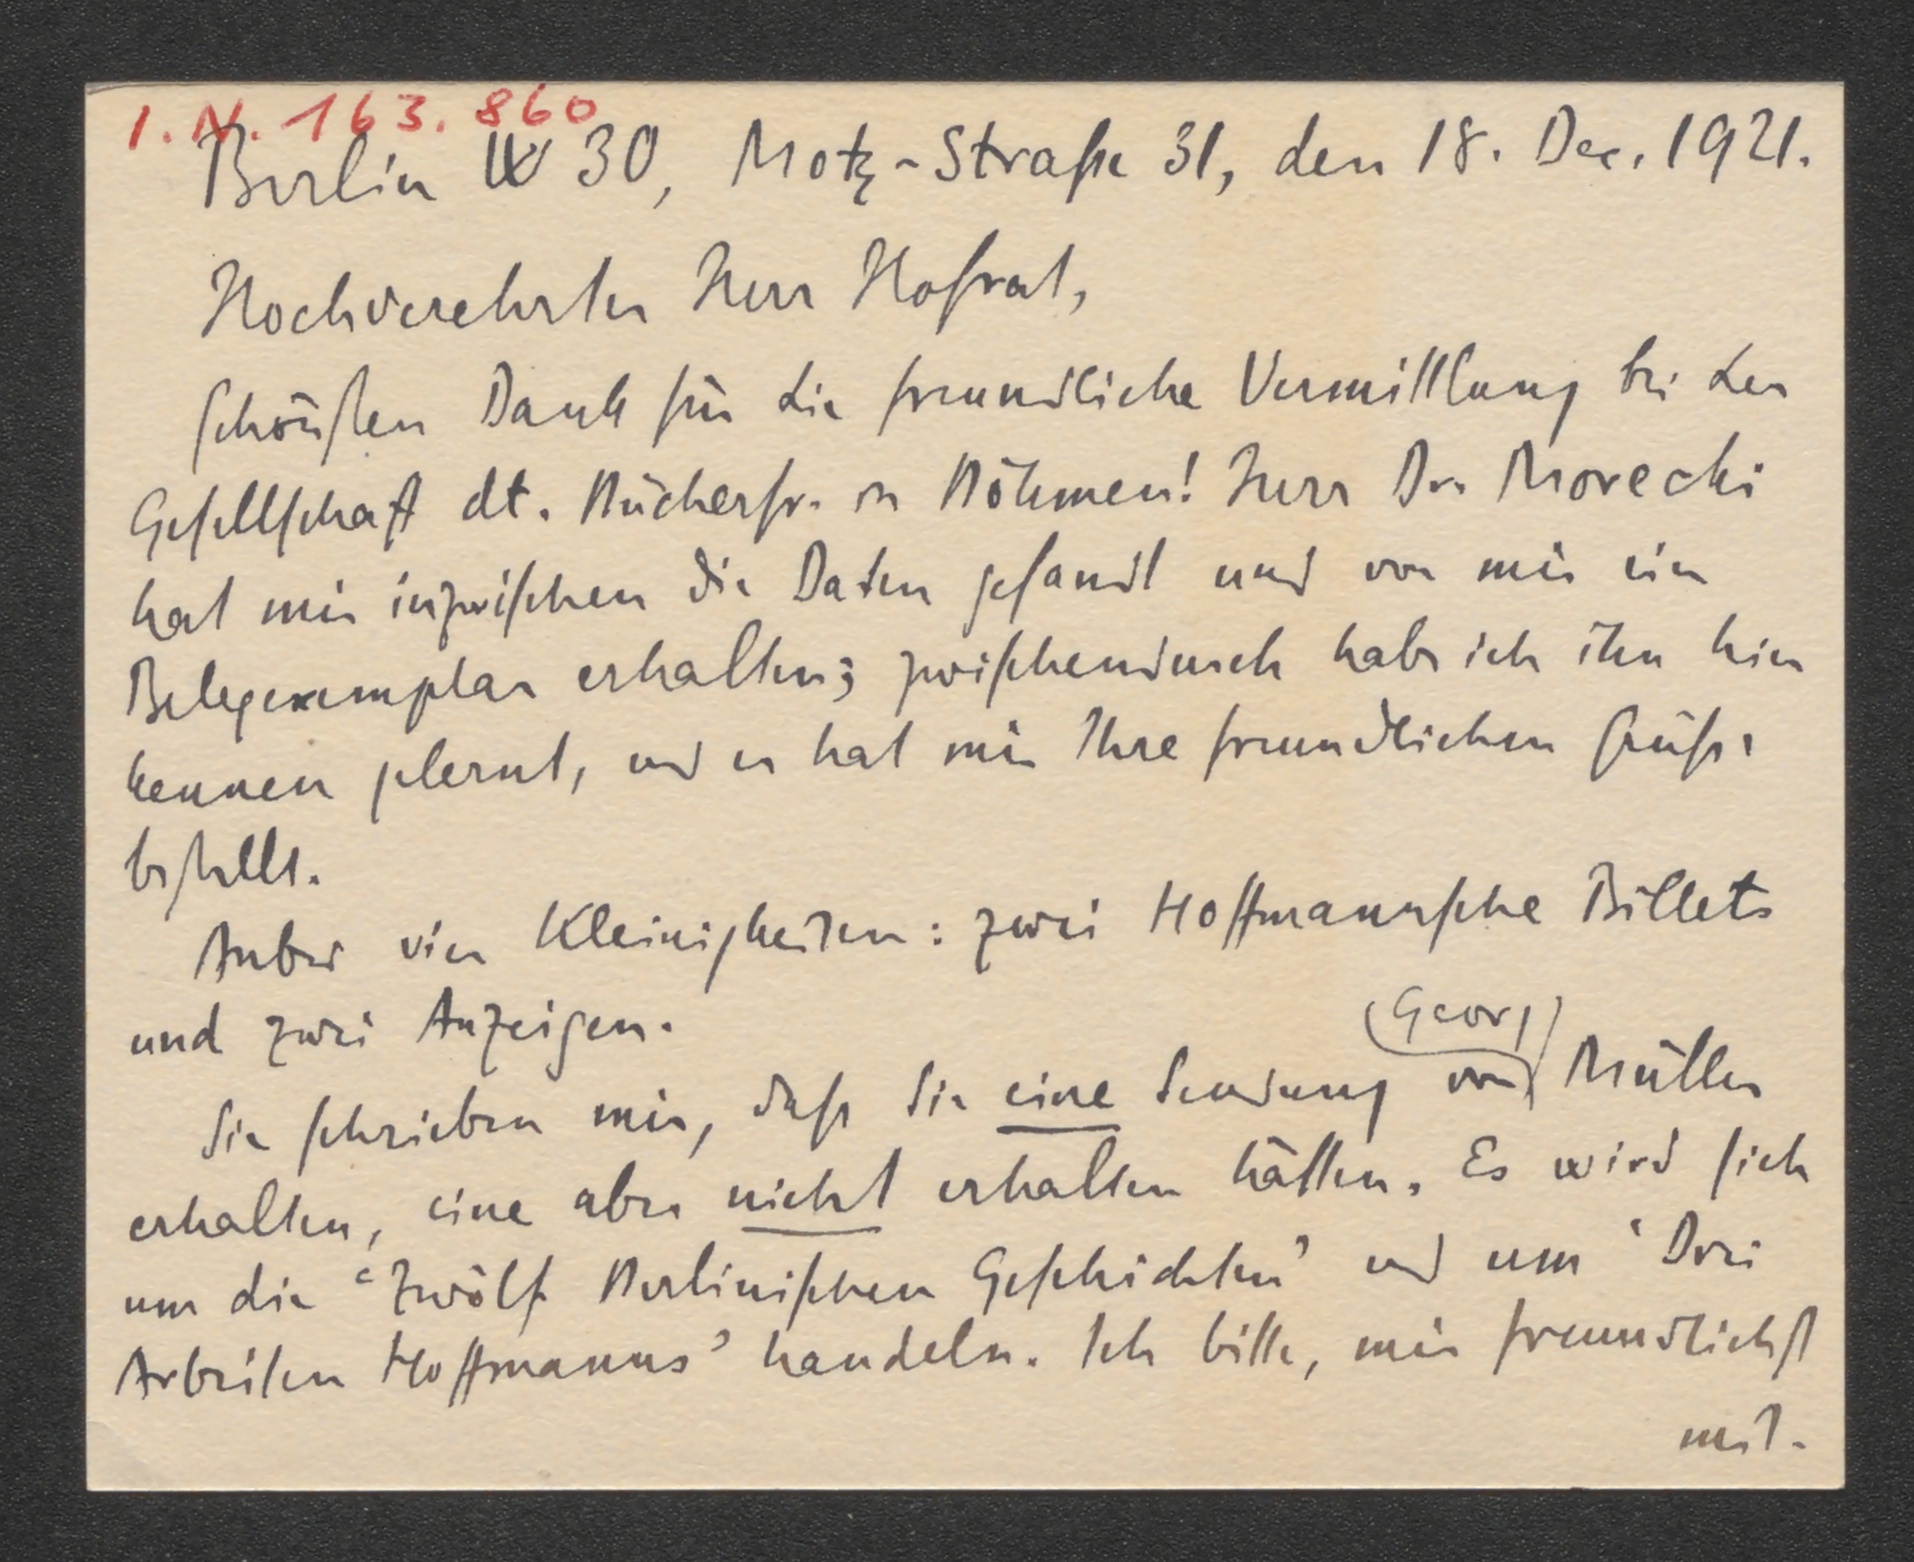 I.N. 163.860
Berlin W 30, Motz-Straße 31, den 18. Dec. 1921.
Hochverehrter Herr Hofrat,
schönsten Dank für die freundliche Vermittlung bei der
Gesellschaft dt. Bücherfr. in Böhmen! Herr Dr. Morecki
hat mir inzwischen die Daten gesandt und von mir ein
Belegexemplar erhalten; zwischendurch habe ich ihn hier
kennen gelernt, und er hat mir Ihre freundlichen Grüße
bestellt.
Anbei vier Kleinigkeiten: zwei Hoffmannsche Billets
und zwei Anzeigen.
(Georg)
Sie schrieben mir, daß Sie eine Sendung von Müller
erhalten, eine aber nicht erhalten hätten. Es wird sich
um die 'Zwölf Berlinischen Geschichten' und um 'Drei
Arbeiten Hoffmanns' handeln. Ich bitte, mir freundlichst
mit-